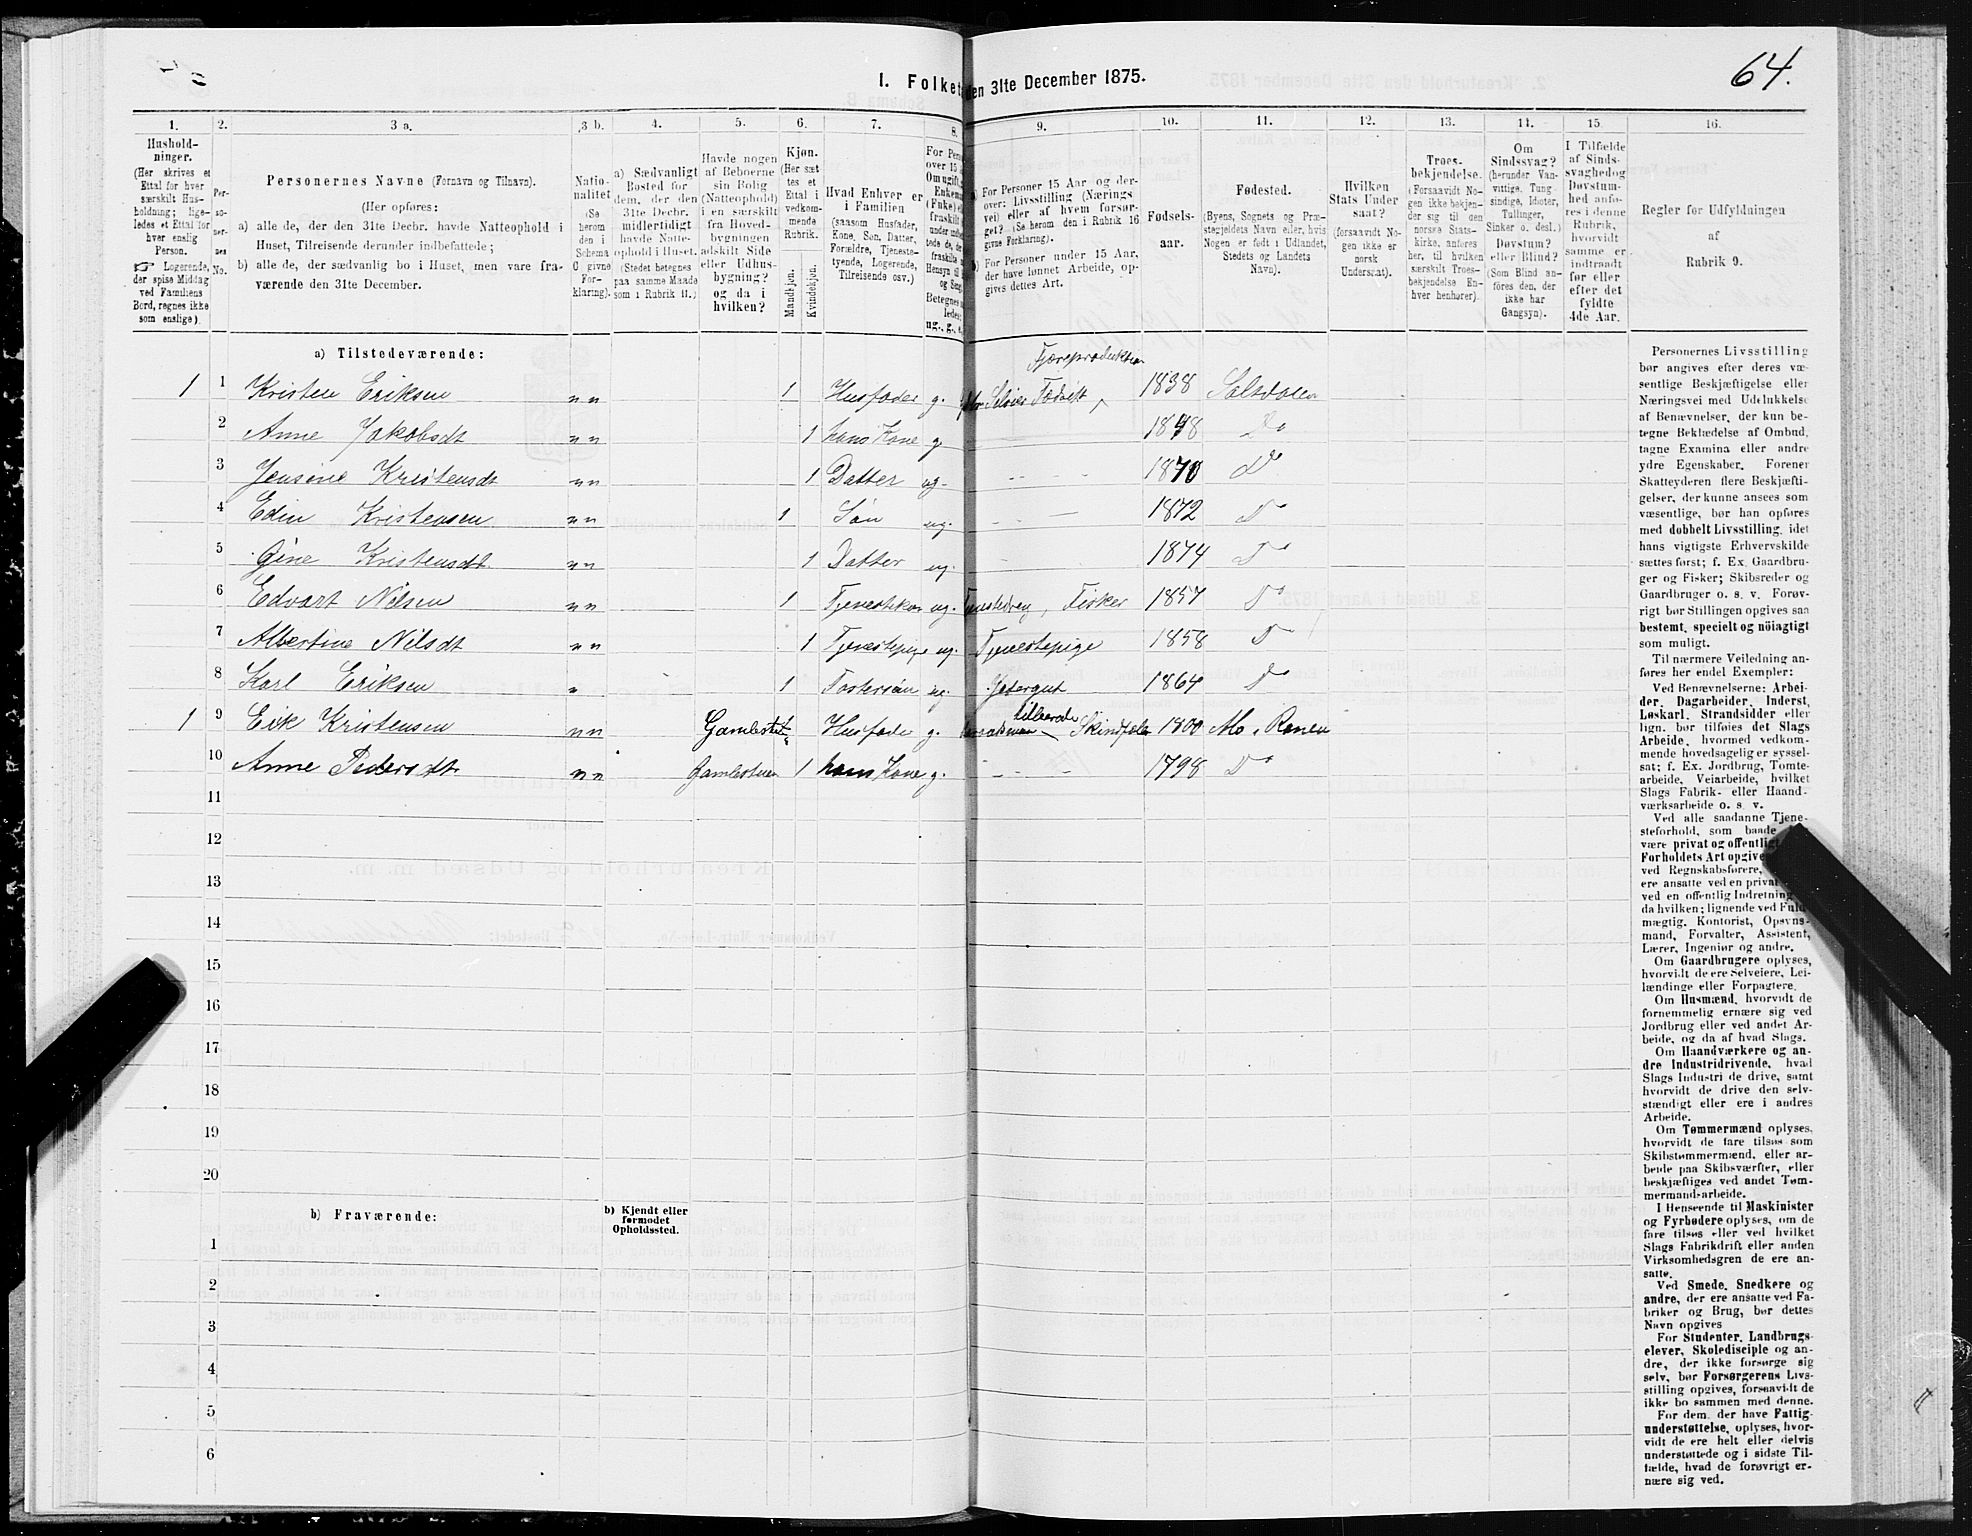 64.
1. Folket den 31te December 1875.
1. 2. 3 a. 3 b. 4. 5. 6. 7. 8. 9. 10. 11. 12. 13. 14. 15. 16.
Husholdninger.
(Her skrives et Ettal for hver særskilt Husholdning; ligeledes et Ettal for hver enslig Person.
☞ Logerende, der spise Middag ved Familiens Bord, regnes ikke som enslige).
Personernes No.
Personernes Navne (Fornavn og Tilnavn).
(Her opføres:
a) alle de, der den 31te Decbr. havde Natteophold i Huset, Tilreisende derunder indbefattede;
b) alle de, der sædvanlig bo i Huset, men vare fraværende den 31te December.
Nationalitet
(Se herom den i Schema 6 givne Forklaring).
a) Sædvanligt Bosted for dem, der den 31te Decbr. midlertidigt havde Natteophold i Huset.
(Stedet betegnes paa samme Maade som i Rubrik 11.)
Havde nogen af Beboerne sin Bolig (Natteophold) i en særskilt fra Hovedbygningen adskilt Side eller Udhusbygning? og da i hvilken?
Kjøn.
(Her sættes et Ettal i vedkommende Rubrik.
Mandkjøn. Kvindekjøn.
Hvad Enhver er i Familien
(saasom Husfader, Kone, Søn, Datter, Forældre, Tjenestetyende, Logerende, Tilreisende osv.)
a) For Personer 15 Aar og derover: Livsstilling (Næringsvei) eller af hvem forsørget? (Se herom den i Rubrik 16 givne Forklaring).
b) For Personer under 15 Aar, der have lønnet Arbeide, opgives dettes Art.
Fødselsaar.
Fødested.
(Byens, Sognets og Præstegjeldets Navn eller, hvis Nogen er født i Udlandet, Stedets og Landets Navn).
Hvilken Stats Undersaat?
(Forsaavidt Nogen ikke er norsk Undersaat).
Troesbekjendelse.
(Forsaavidt Nogen ikke bekjender sig til den norske Statskirke, anføres her, til hvilken særskilt Troesbekjendelse Enhver henhører).
Om Sindssvag?
(herunder Vanvittige, Tungsindige, Idioter, Tullinger, Sinker o. desl.)
Døvstum? eller Blind?
(Som Blind anføres den, der ikke har Gangsyn).
I Tilfælde af Sindssvaghed og Døvstumhed anføres i denne Rubrik, hvorvidt samme er indtraadt før eller efter det fyldte 4de Aar.
Regler for Udfyldningen af Rubrik 9.
a) Tilstedeværende:
Fjæreproduktion
1 1 Kristen Eriksen " " 1 Husfader g. Selveier 1838 Saltdalen
2 Anne Jakobsdt " " 1 hans Kone g. 1848 Do
3 Jensine Kristensdt " " 1 Datter ug. 1870 Do
4 Edin Kristensen " " 1 Søn ug. 1872 Do
5 Gine Kristensdt " " 1 Datter ug. 1874 Do
6 Edvart Nilsen " " 1 ug. Fisker 1857 Do
7 Albertine Nilsdt " " 1 Tjenestepige ug. Tjenestepige 1858 Do
8 Karl Eriksen " 1 Fostersøn ug. 1864 Do
1 9 Erik Kristensen " " Husfader g. 1800 Mo, Ranen
10 Anne Pedersdt " " 1 hans Kone g. 1798 Do
11
12
13
14
15
16
17
18
19
20
b) Fraværende:
b) Kjendt eller formodet Opholdssted.
1
2
3
4
5
6
Personernes Livsstilling
bør angives efter deres væ-
sentlige Beskjæftigelse eller
Næringsvei med Udelukkelse
af Benævnelser, der kun be-
tegne Beklædelse af Ombud,
tagne Examina eller andre
ydre Egenskaber. Forener
Skatteyderen flere Beskjæfti-
gelser, der kunne ansees som
væsentlige, bør han opføres
med dobbelt Livsstilling, idet
hans vigtigste Erhvervskilde
sættes først; f. Ex. Gaardbru-
ger og Fisker; Skibsreder og
Gaardbruger o. s. v. Forøv-
rigt bør Stillingen opgives saa
bestemt, specielt og nøiagtigt
som muligt.
Til nærmere Veiledning an-
føres her endel Exempler:
Ved Benævnelserne: Arbei-
der, Dagarbeider, Inderst,
Løskarl, Strandsidder eller
lign. bør tilføies det Slags
Arbeide, hvormed vedkom-
mende hovedsagelig er syssel-
sat; f. Ex. Jordbrug, Tomte-
arbeide, Veiarbeide, hvilket
Slags Fabrik- eller Haand-
værksarbeide o. s. v.
Ved alle saadanne Tjene-
steforhold, som baade
være privat og offentlig
Forholdets Art opgive
ved Regnskabsførere,
ere ansatte ved en privat
ved en offentlig Indretning
da hvilken; lignende ved Fuld-
mægtig, Kontorist, Opsyns-
mand, Forvalter, Assistent,
Lærer, Ingeniør og andre.
Om Gaardbrugere oplyses,
hvorvidt de ere Selveiere, Lei-
lændinge eller Forpagtere.
Om Husmænd, hvorvidt de
fornemmelig ernære sig ved
Jordbrug eller ved andet Ar-
beide, og da af hvad Slags.
Om Haandværkere og an-
dre Industridrivende, hvad
Slags Industri de drive, samt
hvorvidt de drive den selv-
stændigt eller ere i andres
Arbeide.
Om Tømmermænd oplyses,
hvorvidt de fare tilsøs som
Skibstømmermænd, eller ar-
beide paa Skibsværfter, eller
beskjæftiges ved andet Tøm-
mermandsarbeide.
I Henseende til Maskinister
og Fyrbødere oplyses, om de
fare tilsøs eller ved hvilket
Slags Fabrikdrift eller anden
Virksomhedsgren de ere an-
satte.
Ved Smede, Snedkere og
andre, der ere ansatte ved Fa-
briker og Brug, bør dettes
Navn opgives
For Studenter, Landbrugs-
elever, Skoledisciple og an-
dre, der ikke forsørge sig
selv, bør Forsørgerens Livs-
stilling opgives, forsaavidt de
ikke bo sammen med denne.
For dem, der have Fattig-
understøttelse, oplyses, hvor-
vidt de ere helt eller delvis
understøttede og i sidste Til-
fælde, hvad de forøvrigt er-
nære sig ved.